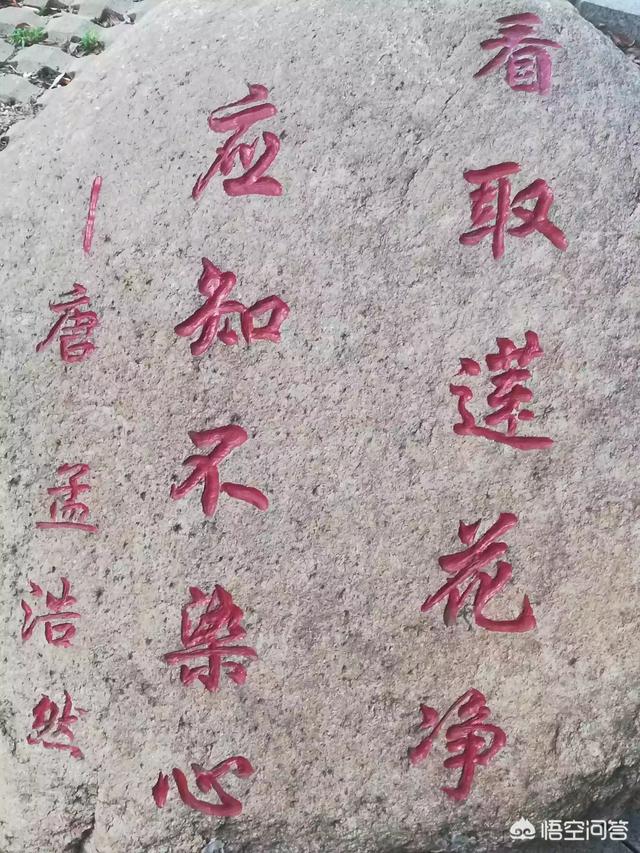 看取莲花净
应知不染心
—唐孟浩然
悟空问答